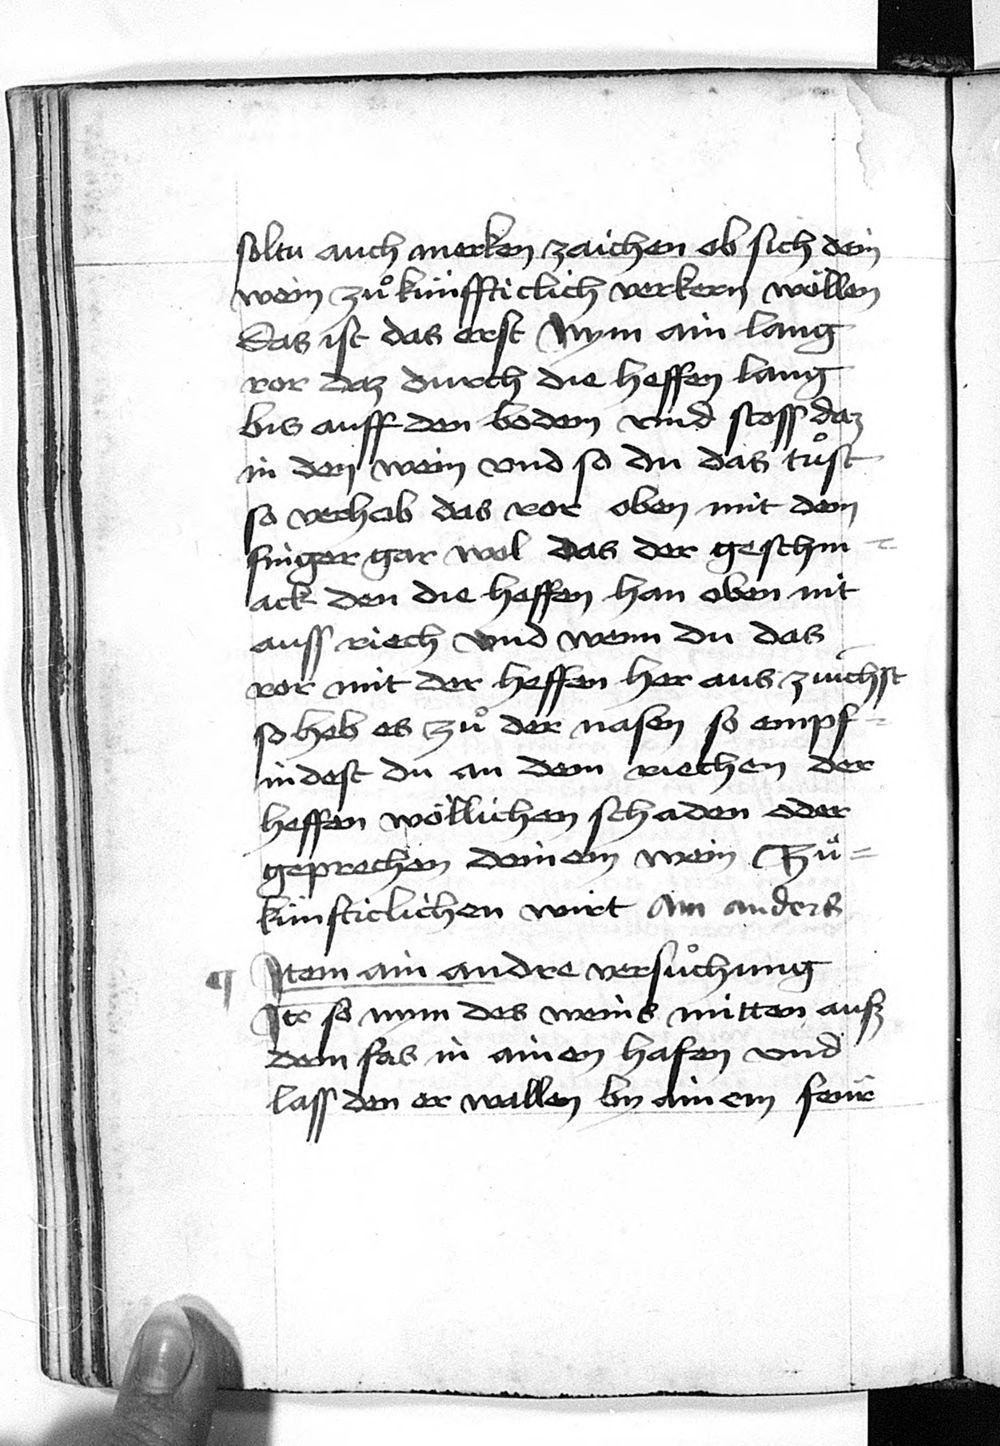 soltu auch merken zaichen ob sich dein
wein zuͦkünffticlich verkern wöllen
Das ist das erst Nym ain lang
ror daz durch die heffen lang
bis auff den bodem vnd stoss daz
in den wein vnd so du das tuͦst
so verhab das ror oben mit dem
finger gar wol das der geschm-
ack den die heffen han oben nit
auss riech vnd wenn du das
ror mit der heffen her aus zuichst
so heb es zuͦ der nasen so empf=
indest du an dem riechen der
heffen wöllichen schaden oder
geprechen deinem wein Zuͦ=
künfticlichen wirt Ain anders
¶ Item ain andre versuͦchung
Itē so nym des weins mitten ausz
dem fas in ainen hafen vnd
lass den er wallen by ainem feur